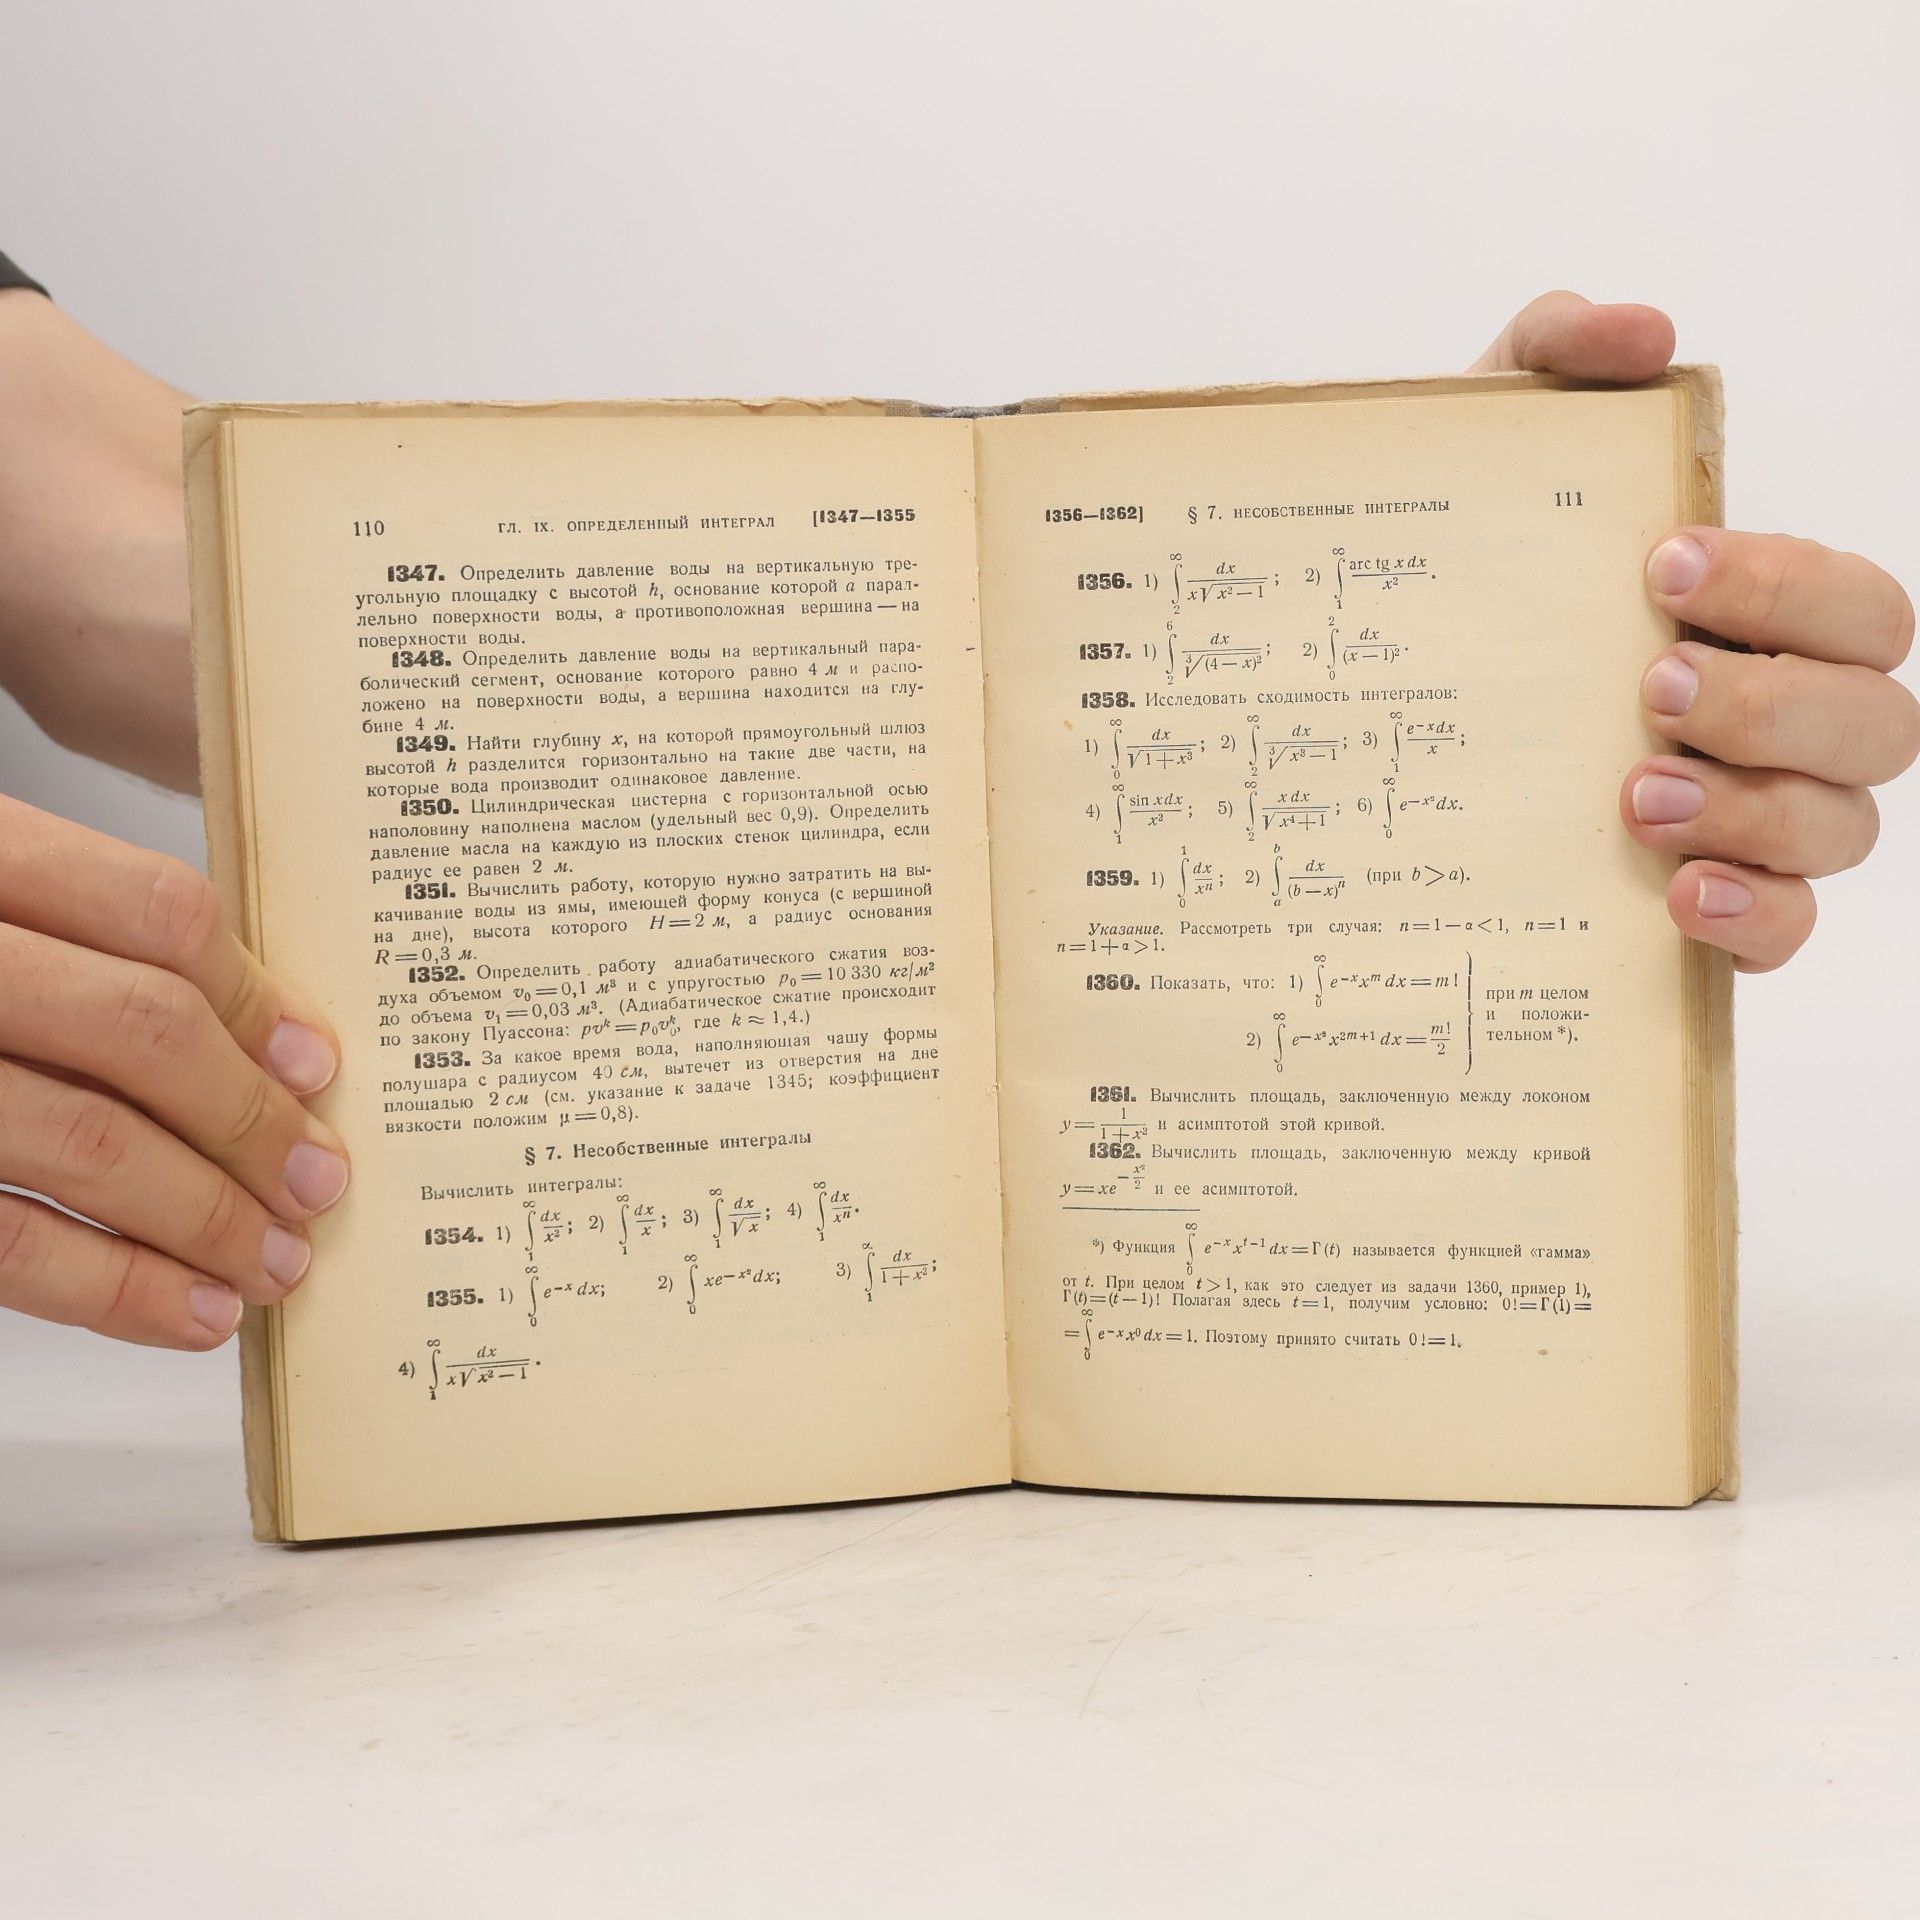 110 ГЛ. IX. ОПРЕДЕЛЕННЫЙ ИНТЕГРАЛ [1347—1355
1347. Определить давление воды на вертикальную тре-
угольную площадку с высотой h, основание которой a парал-
лельно поверхности воды, а противоположная вершина — на
поверхности воды.
1348. Определить давление воды на вертикальный пара-
болический сегмент, основание которого равно 4 м и распо-
ложено на поверхности воды, а вершина находится на глу-
бине 4 м.
1349. Найти глубину x, на которой прямоугольный шлюз
высотой h разделится горизонтально на такие две части, на
которые вода производит одинаковое давление.
1350. Цилиндрическая цистерна с горизонтальной осью
наполовину наполнена маслом (удельный вес 0,9). Определить
давление масла на каждую из плоских стенок цилиндра, если
радиус ее равен 2 м.
1351. Вычислить работу, которую нужно затратить на вы-
качивание воды из ямы, имеющей форму конуса (с вершиной
на дне), высота которого H=2 м, а радиус основания
R=0,3 м.
1352. Определить работу адиабатического сжатия воз-
духа объемом v₀=0,1 м³ и с упругостью p₀=10 330 кг/м²
до объема v₁=0,03 м³. (Адиабатическое сжатие происходит
по закону Пуассона: pvᵏ=p₀v₀ᵏ, где k ≈ 1,4.)
1353. За какое время вода, наполняющая чашу формы
полушара с радиусом 40 см, вытечет из отверстия на дне
площадью 2 см (см. указание к задаче 1345; коэффициент
вязкости положим μ=0,8).
§ 7. Несобственные интегралы
Вычислить интегралы:
1354. 1) ∫₁^∞ dx/x²; 2) ∫₁^∞ dx/x; 3) ∫₁^∞ dx/√x; 4) ∫₁^∞ dx/xⁿ.
1355. 1) ∫₀^∞ e^(−x) dx; 2) ∫₀^∞ xe^(−x²) dx; 3) ∫₁^∞ dx/(1+x²);
4) ∫₁^∞ dx/(x√(x²−1)).
1356—1362] § 7. НЕСОБСТВЕННЫЕ ИНТЕГРАЛЫ 111
1356. 1) ∫₂^∞ dx/(x√(x²−1)); 2) ∫₁^∞ arc tg x dx/x².
1357. 1) ∫₂^6 dx/∛(4−x)²; 2) ∫₀^2 dx/(x−1)².
1358. Исследовать сходимость интегралов:
1) ∫₀^∞ dx/√(1+x³); 2) ∫₂^∞ dx/∛(x³−1); 3) ∫₁^∞ e^(−x)dx/x;
4) ∫₁^∞ sin xdx/x²; 5) ∫₂^∞ x dx/√(x⁴+1); 6) ∫₀^∞ e^(−x²)dx.
1359. 1) ∫₀^1 dx/xⁿ; 2) ∫ₐ^b dx/(b−x)ⁿ (при b>a).
Указание. Рассмотреть три случая: n=1−α<1, n=1 и
n=1+α>1.
1360. Показать, что: 1) ∫₀^∞ e^(−x)x^m dx=m! при m целом
и положи-
2) ∫₀^∞ e^(−x²)x^(2m+1) dx=m!/2 тельном *).
1361. Вычислить площадь, заключенную между локоном
y=1/(1+x²) и асимптотой этой кривой.
1362. Вычислить площадь, заключенную между кривой
y=xe^(−x²/2) и ее асимптотой.
*) Функция ∫₀^∞ e^(−x)x^(t−1) dx=Γ(t) называется функцией «гамма»
от t. При целом t>1, как это следует из задачи 1360, пример 1),
Γ(t)=(t−1)! Полагая здесь t=1, получим условно: 0!=Γ(1)=
=∫₀^∞ e^(−x)x⁰dx=1. Поэтому принято считать 0!=1.